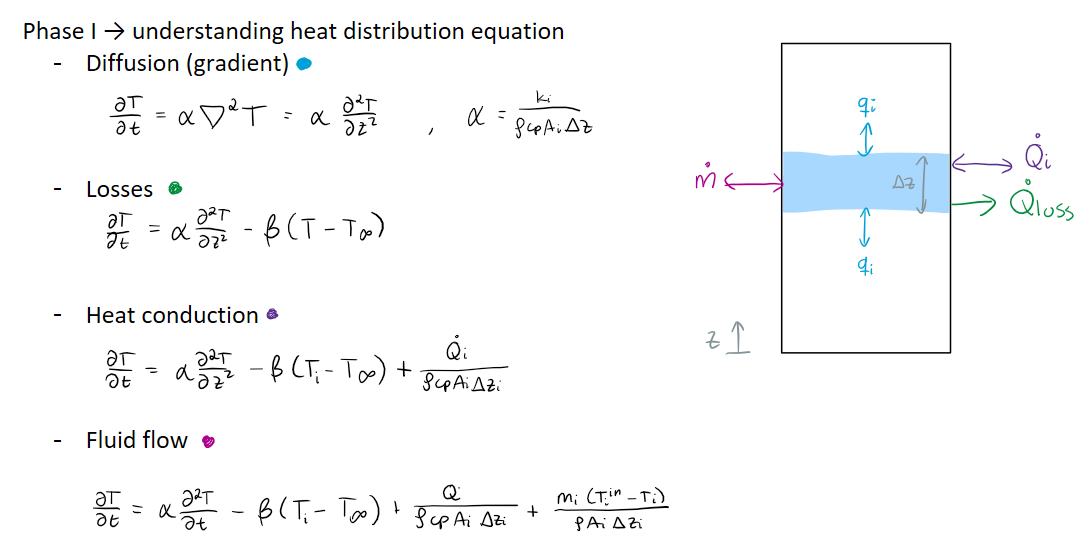 Phase I → understanding heat distribution equation
- Diffusion (gradient)
∂T/∂t = α∇²T = α ∂²T/∂z² , α = ki/(ρcpAiΔz)
- Losses
∂T/∂t = α ∂²T/∂z² - β(T - T∞)
- Heat conduction
∂T/∂t = α ∂²T/∂z² - β(Ti - T∞) + Q̇i/(ρcpAiΔzi)
- Fluid flow
∂T/∂t = α ∂²T/∂t - β(Ti - T∞) + Qi/(ρcpAiΔzi) + mi(Ti^in - Ti)/(ρAiΔzi)
qi
ṁ
Δz
Q̇i
Q̇loss
qi
z